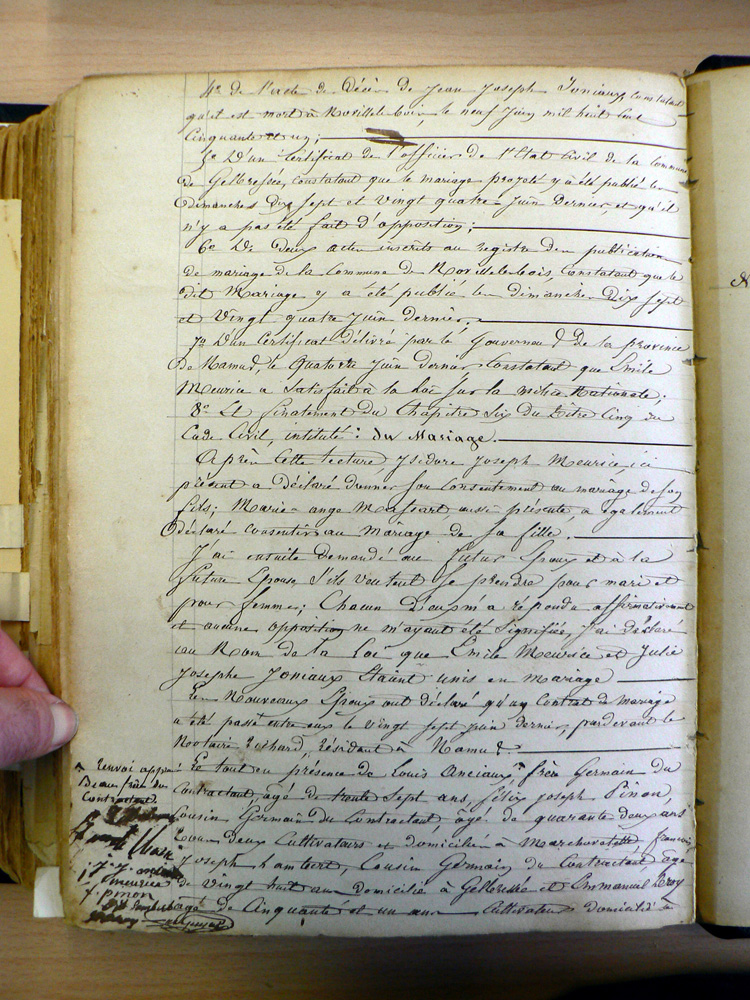 4º de l'acte de Décès de Jean Joseph Joniaux, constatant
qu'il est mort à Noville-les-bois, le neuf Juin mil huit cent
cinquante et un;
5º D'un Certificat de l'officier de l'Etat Civil de la commune
de Gelbressée, constatant que le mariage projeté y a été publié les
dimanches dix sept et vingt quatre Juin dernier, et qu'il
n'y a pas été fait d'opposition;
6º De deux actes inscrits au registre des publications
de mariage de la Commune de Noville-les-bois constatant que le
dit Mariage y a été publié les dimanches Dix sept
et Vingt quatre Juin dernier;
7º D'un Certificat délivré par le Gouverneur de la province
De Namur, le Quatorze Juin dernier constatant que Emile
Meurice a satisfait à la loi sur la milice Nationale;
8º Et finalement du Chapitre Six du Titre Cinq du
Code Civil, intitulé: du Mariage.
Après cette lecture, Isidore Joseph Meurice, ici
présent a déclaré donner son consentement au mariage de son
fils; Marie-ange Massart, aussi présente, a également
déclaré consentir au Mariage de sa fille.
J'ai ensuite demandé au futur Epoux et à la
future Epouse s'ils veulent se prendre pour mari et
pour femme; Chacun D'eux m'a répondu affirmativement
et aucune opposition ne m'ayant été signifiée, j'ai déclaré
au Nom de la loi que Emile Meurice et Julie
Josephe Joniaux étaient unis en mariage
Les Nouveaux Epoux ont déclaré qu'un Contrat de mariage
a été passé entre eux le vingt sept juin dernier, pardevant le
Notaire Richard, résidant à Namur.
Le tout en présence de Louis Anciaux, frère Germain du
Contractant, agé de trente sept ans, félix joseph Pinon,
Cousin Germain du Contractant, agé de quarante deux ans
tous deux Cultivateurs et domiciliés à Marchovelette, françois
Joseph Lambert, Cousin Germain du Contractant, agé
de vingt huit ans Domicilié à Gelbressée et Emmanuel Leroy
agé de Cinquante et un ans Cultivateur domicilié à
Renvoi appr
Beau frère du
Contractant.
meurice
f. pinon